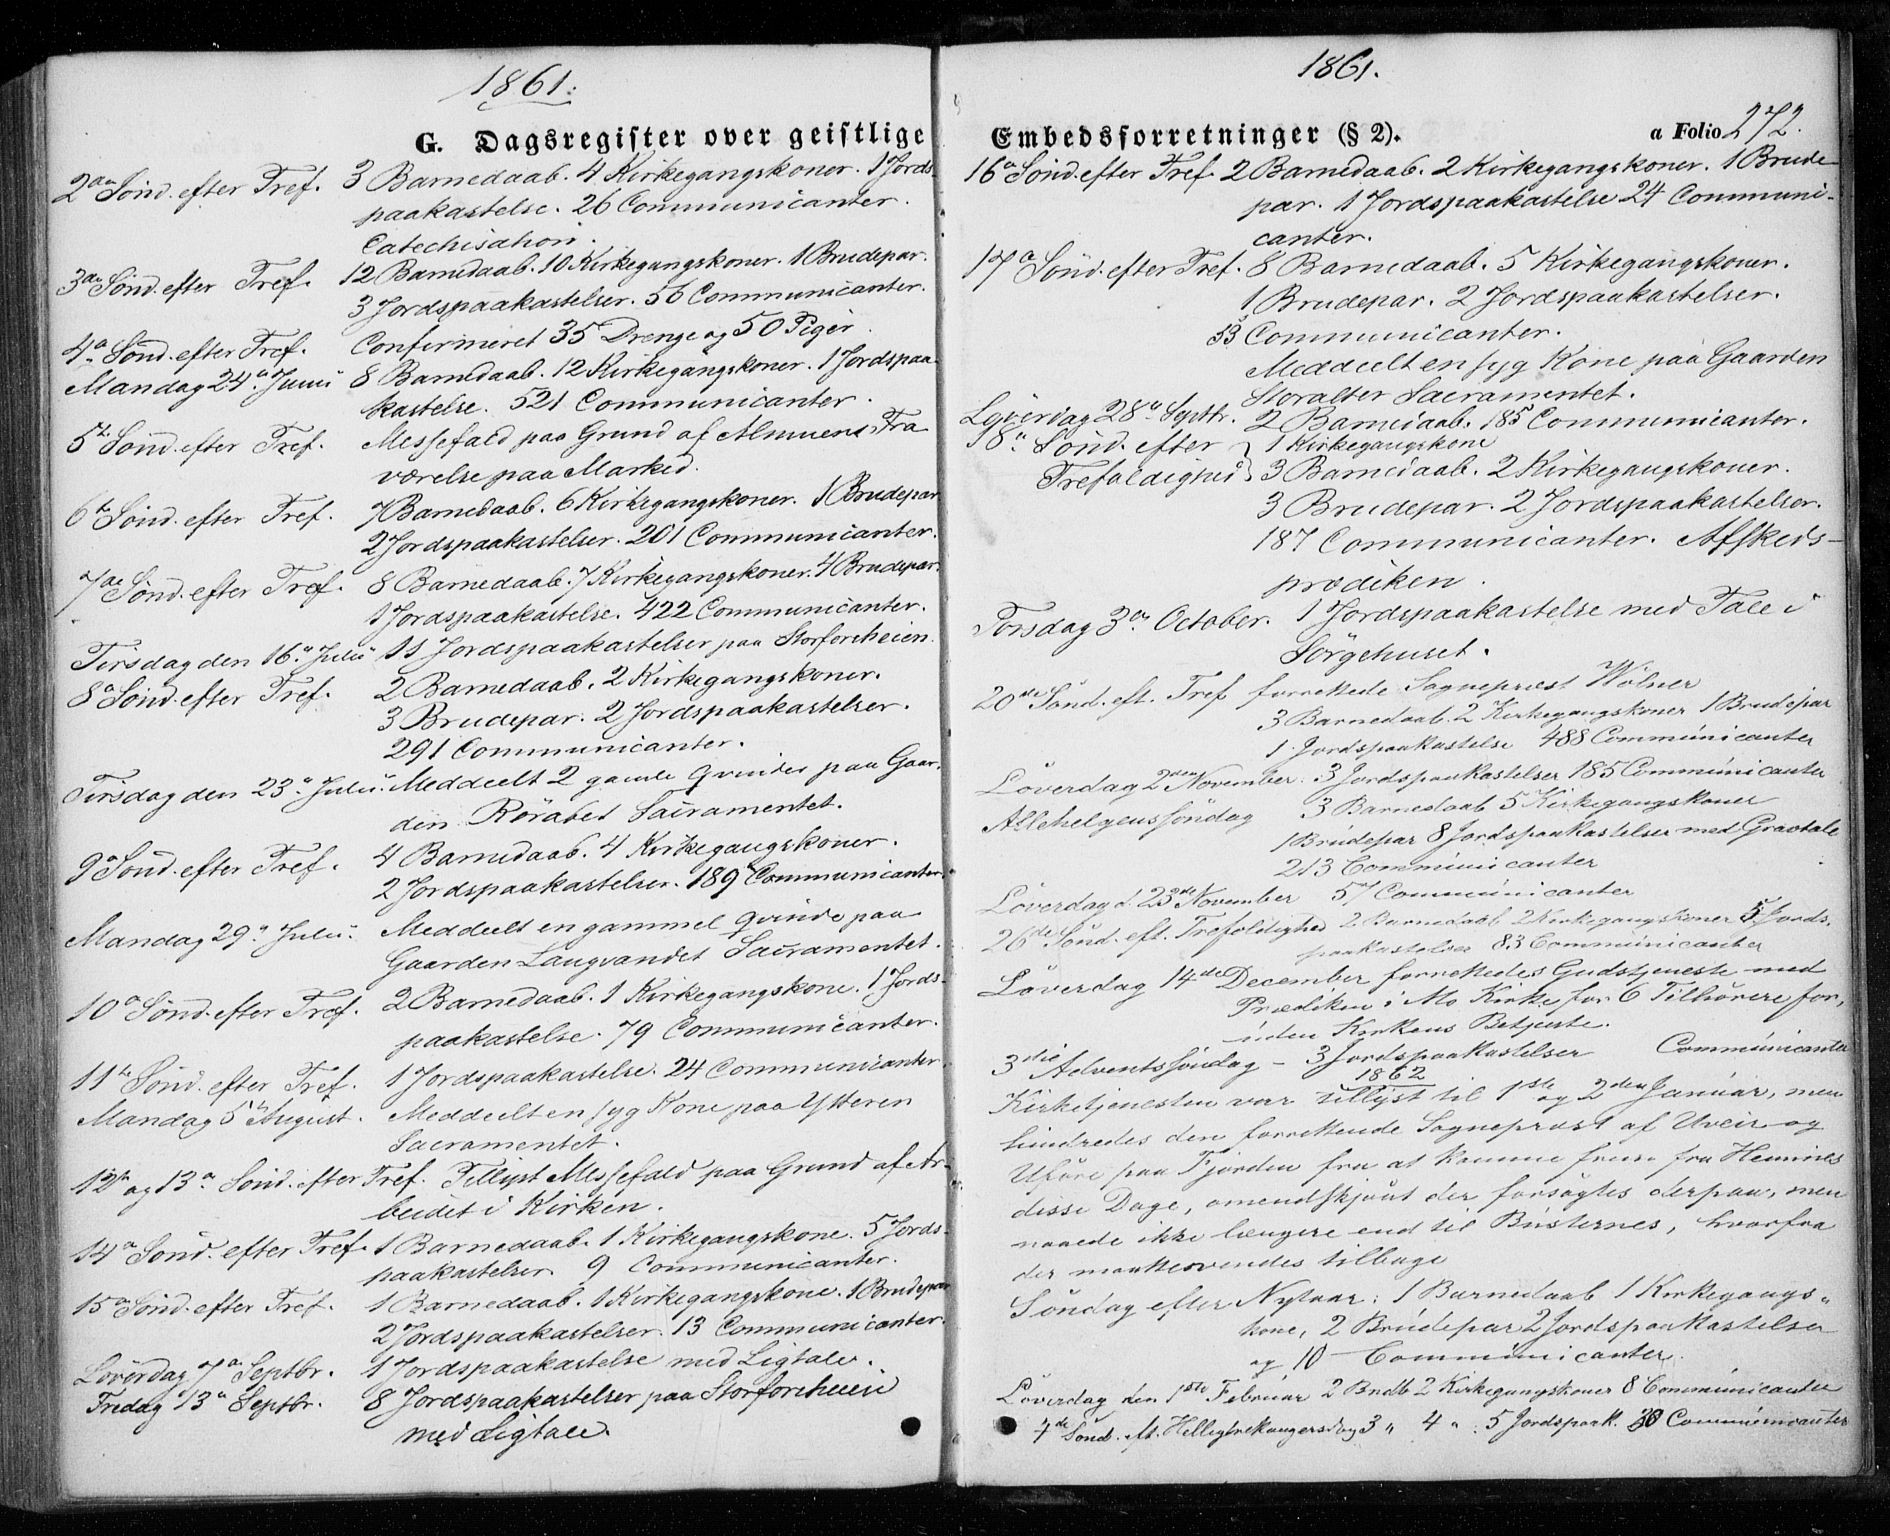 1861.
G. Dagsregister over geistlige
2den Sønd. efter Tref. 3 Barnedaab. 4 Kirkegangskoner. 1 Jords
paakastelse. 26 Communicanter.
Catechisation.
3die Sønd. efter Tref. 12 Barnedaab. 10 Kirkegangskoner. 1 Brudepar.
3 Jordspaakastelser. 56 Communicanter.
4a Sønd. efter Tref. Confirmeret 35 Drenge og 50 Piger.
Mandag 24a Junii 8 Barnedaab. 12 Kirkegangskoner. 1 Jordspaa
kastelse. 521 Communicanter.
5te Sønd. efter Tref. Messefald paa Grund af Almuens Fra
værelse paa Marked.
6te Sønd. efter Tref. 7 Barnedaab. 6 Kirkegangskoner. 1 Brudepar
2 Jordspaakastelser. 201 Communicanter.
7de Sønd. efter Tref. 8 Barnedaab. 7 Kirkegangskoner. 4 Brudepar.
1 Jordspaakastelse. 422 Communicanter.
Tirsdag den 16a Julii 11 Jordspaakastelser paa Storforsheien.
8a Sønd. efter Tref. 2 Barnedaab. 2 Kirkegangskoner.
3 Brudepar. 2 Jordspaakastelser.
291 Communicanter.
Tirsdag den 23a Julii. Meddeelt 2 gamle Qvinder paa Gaar,
den Røråbet Sacramentet.
9a Sønd. efter Tref. 4 Barnedaab. 4 Kirkegangskoner.
2 Jordspaakastelser. 189 Communicanter.
Mandag 29a Julii. Meddeelt en gammel Qvinde paa
Gaarden Langvandet Sacramentet.
10a Sønd. efter Tref. 2 Barnedaab. 1 Kirkegangskone. 1 Jords-
paakastelse. 79 Communicanter.
11te Sønd. efter Tref. 1 Jordspaakastelse. 24 Communicanter.
Mandag 5te August. Meddeelt en syg Kone paa Ytteren
Sacramentet.
12te og 13a Sønd. efter Tref. Tillyst Messefald paa Grund af Ar-
beidet i Kirken.
14a Sønd. efter Tref. 1 Barnedaab. 1 Kirkegangskone. 5 Jords-
paakastelser. 9 Communicanter.
15a Sønd. efter Tref. 1 Barnedaab. 1 Kirkegangskone. 1 Brudepar
2 Jordspaakastelser. 13 Communicanter.
Løverdag 7a Septbr. 1 Jordspaakastelse med Ligtale.
Fredag 13a Septbr. 8 Jordspaakastelser paa Storforsheien
med Ligtale.
1861.
Embedsforretninger (§ 2). a Folio 272.
16a Sønd. efter Tref. 2 Barnedaab. 2 Kirkegangskoner. 1 Brude-
par. 1 Jordspaakastelse 24 Communi-
canter.
17a Sønd. efter Tref. 8 Barnedaab. 5 Kirkegangskoner.
1 Brudepar. 2 Jordspaakastelser.
53 Communicanter.
Meddeelt en syg Kone paa Gaarden
Storalter Sacramentet.
Løverdag 28a Septbr. 2 Barnedaab. 185 Communicanter.
18a Sønd. efter 1 Kirkegangskone
Trefoldighed 3 Barnedaab. 2 Kirkegangskoner.
3 Brudepar. 2 Jordspaakastelser.
187 Communicanter. Afskeds-
prædiken.
Torsdag 3die October. 1 Jordspaakastelse med Tale i
Sørgehuset.
20de Sønd. eft. Tref forrettede Sognepræst Wolner
3 Barnedaab. 2 Kirkegangskoner 1 Brudepar
1 Jordspaakastelse 488 Communicanter
Løverdag 2den November. 3 Jordspaakastelser 185 Communicanter
Allehelgenssøndag 3 Barnedaab 5 Kirkegangskoner
1 Brudepar 8 Jordspaakastelser med Gravtale
213 Communicanter
Løverdag d. 23de November 57 Communicanter
26de Sønd. eft. Trefoldighed 2 Barnedaab 2 Kirkegangskoner 5 Jords,
paakastelser 83 Communicanter
Løverdag 14de December forrettedes Gudstjeneste med
Prædiken i Mo Kirke for 6 Tilhørere for,
uden Kirkens Betjente.
3die Adventssøndag - 3 Jordspaakastelser Communicanter
1862
Kirketjenesten var tillyst til 1ste og 2den Januar, men
hindredes den forrettende Sognepræst af Uveir og
Uføre paa Fjorden fra at komme frem fra Hemnes
disse Dage, omendskjønt der forsøgtes derpaa, men
naaede ikke længere end til Bústernes, hvorfra
der maatte vendes tilbage
Søndag efter Nytaar: 1 Barnedaab 1 Kirkegangs-
kone, 2 Brudepar 2 Jordspaakastelser
og 10 Communicanter.
Løverdag den 1ste Februar 2 Bndb 2 Kirkegangskoner 8 Communicanter
4de Sønd. eft. Helligtrekongersdag 3 " 4 " 5 Jordspaak. Communicanter